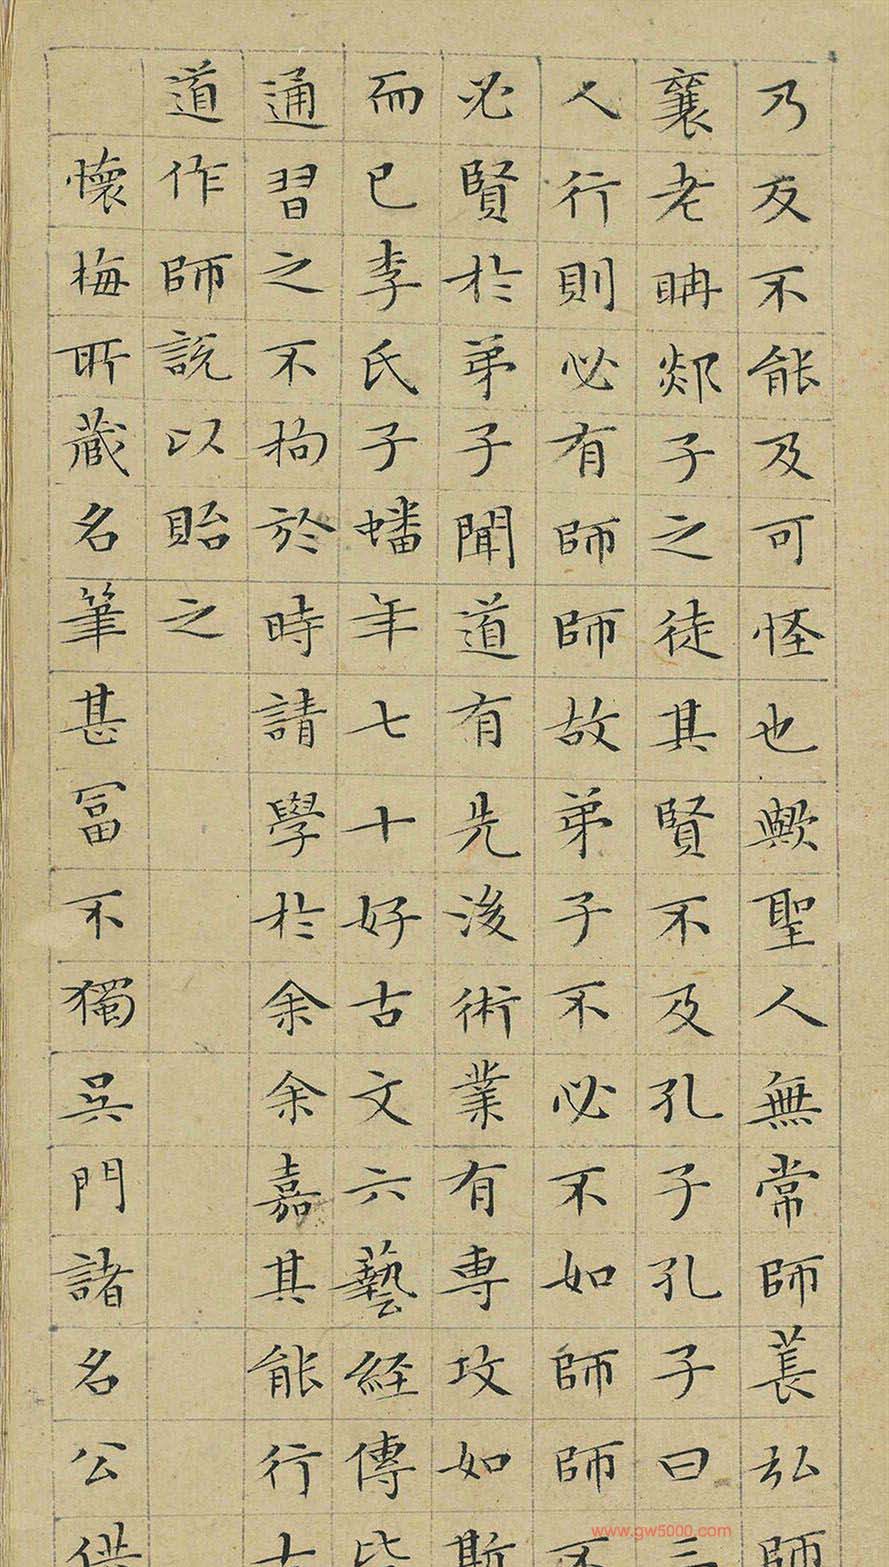 乃反不能及可怪也歟聖人無常師萇弘師
襄老聃郯子之徒其賢不及孔子孔子曰三
人行則必有師師故弟子不必不如師師不
必賢於弟子聞道有先後術業有專攻如斯
而已李氏子蟠年七十好古文六藝経傳皆
通習之不拘於時請學於余余嘉其能行古
道作師說以貽之
懷梅所蔵名筆甚冨不獨吳門諸名公
www.gw5000.com